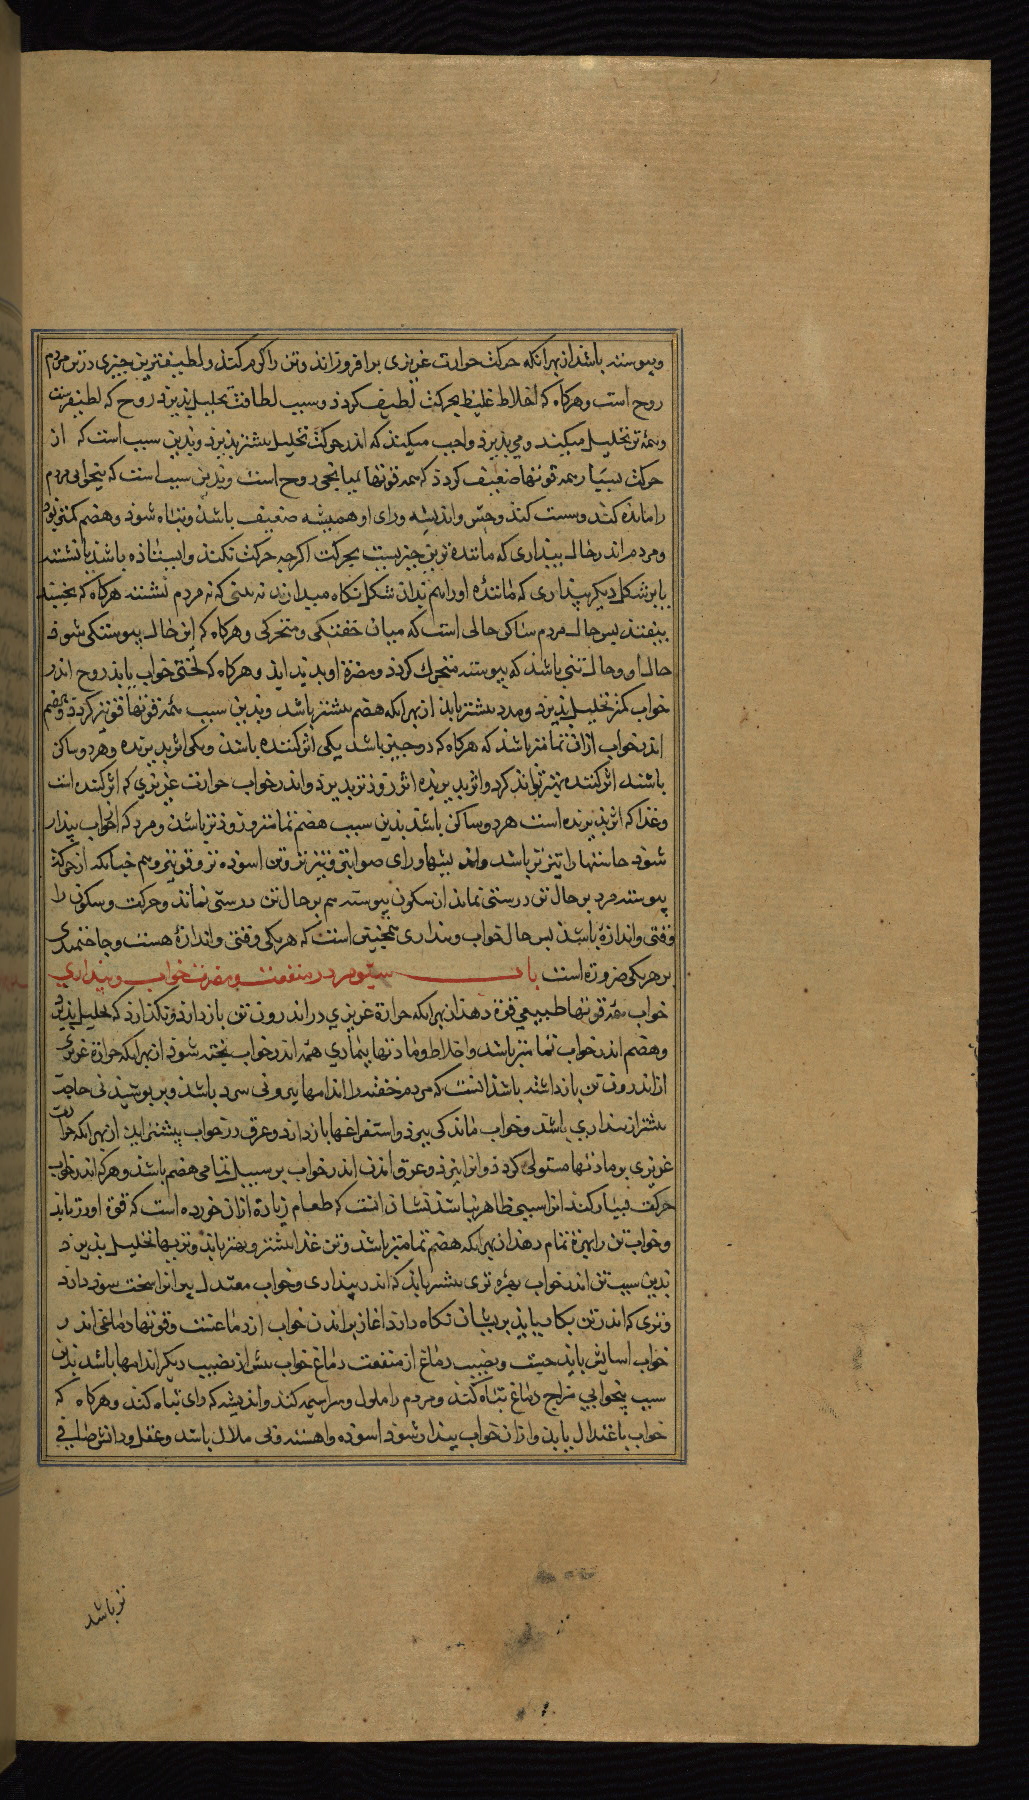 و پیوسته باشد از بهر آنکه حرکت حرارت غریزی برافروزاند و تن را گرم کند و لطیفترین چیزی در تن مردم
روح است و هرگاه که اخلاط غلیظ بحرکت لطیف گردد و سبب لطافت تحلیل پذیرد روح که لطیفترست
و همه تن تحلیل میکند و می پذیرد واجب میکند که اندر حرکت تحلیل بیشتر پذیرد و بدین سبب است که از
حرکت بسیار همه قوتها ضعیف گردد که همه قوتها بمیانجی روح است و بدین سبب است که بیخوابی مردم
را مانده کند و سست کند و حس و اندیشه و رای او همیشه ضعیف باشد و تباه شود و هضم کمتر بود
و مردم اندر حال بیداری که ماننده ترین چیزیست بحرکت اگرچه حرکت نکند و ایستاده باشد یا نشسته
یا بر شکل دیگر پنداری که ماننده او را هم بدان شکل نگاه میدارند نه بینی که نه مردم نشسته هرگاه که بخسبد
بیفتد پس حال مردم ساکن حالی است که میان خفتگی و متحرکی و هرگاه که این حال پیوستگی شود
حال او و حال تنی باشد که پیوسته متحرک گردد و مضرة او پدید آید و هرگاه که لختی خواب یابد روح اندر
خواب کمتر تحلیل پذیرد و مدد بیشتر یابد از بهر آنکه هضم بیشتر باشد و بدین سبب همه قوتها قویتر گردد و هضم
اندر خواب از آن تمامتر باشد که هرگاه که دو چیز باشد یکی اثر کننده باشد و یکی اثر پذیرنده و هر دو ساکن
باشند اثر کننده بهتر تواند کرد و اثر پذیرنده اثر زودتر پذیرد و اندر خواب حرارت غریزی که اثر کننده است
و غذا که اثر پذیرنده است هر دو ساکن باشد بدین سبب هضم تمامتر و زودتر باشد و مردم که از خواب بیدار
شود حاستها را تیزتر باشد و اندیشها و رای صوابتر و تیزتر و تن اسوده تر و قویتر و هم چنانکه از حرکت
پیوسته مردم بر حال تن درستی نماند از سکون پیوسته هم بر حال تن درستی نماند و حرکت و سکون را
وقتی و اندازهٔ باشد پس حال خواب و بیداری همچنین است که هر یکی وقتی و اندازهٔ هست و حاجتمندی
بر هر یکی ضرورة است باب سیوم در منفعت و مضرت خواب و بیداری
خواب همه قوتها طبیعی قوة دهد از بهر آنکه حرارة غریزی در اندرون تن باز دارد و نگذارد که تحلیل پذیرد
و هضم اندر خواب تمامتر باشد و اخلاط و مادتها بیماری همه اندر خواب پخته شود از بهر آنکه حرارة غریزی
از اندرون تن باز داشته باشد انست که مردم خفته را اندامها بیرونی سرد باشد و بر پوشیدنی حاجت
بیشتر از بیداری باشد و خواب ماندگی ببرد و استفراغها باز دارد و عرق در خواب بیشتر اید از بهر آنکه حرارت
غریزی بر مادتها مستولی گردد و انرا بپزد و عرق امدن اندر خواب بر سبیل تمامی هضم باشد و هر که اندر خواب
حرکت بسیار کند انرا سببی ظاهر نباشد نشان انست که طعام زیادة از ان خورده است که قوة او برتابد
و خواب تن را بهرهٔ تمام دهد از بهر آنکه هضم تمامتر باشد و تن غذا بیشتر و بهتر یابد و تریها تحلیل پذیرد
بدین سبب تن اندر خواب بهره تری بیشتر یابد که اندر بیداری و خواب معتدل پیرانرا سخت سود دارد
و تری که اندر تن بکار بیاید بریشان نگاه دارد اغاز براندن خواب از دماغست و قوتها دماغی اندر
خواب اسایش یابد و نصیب دماغ از منفعت دماغ خواب بیش از نصیب دیگر اندامها باشد بدین
سبب بیخوابی مزاج دماغ تباه کند و مردم را ملول و سراسیمه کند و اندیشه که رای تباه کند و هرگاه که
خواب باعتدال یابد و از ان خواب بیدار شود اسوده و اهسته و بی ملال باشد و عقل و دانش صافی
تر باشد